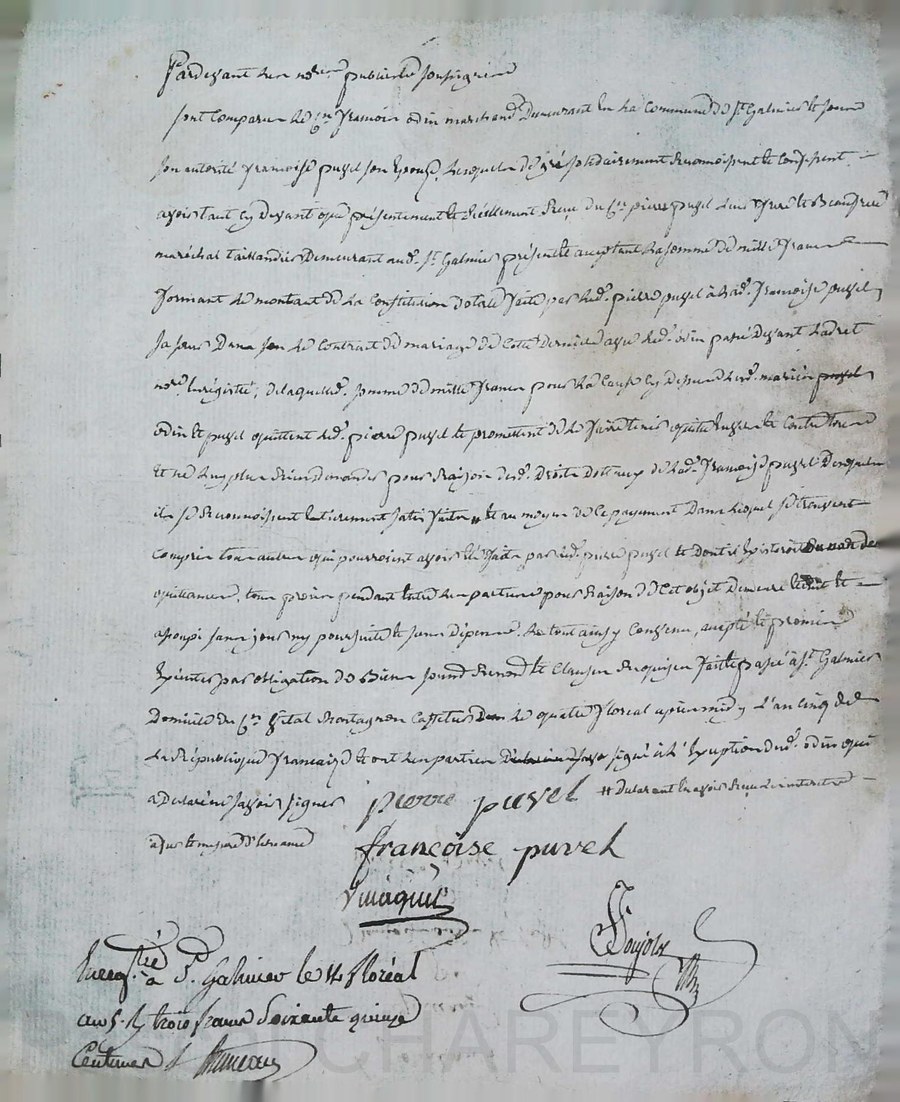 Pardevant les no.res publics soussignés
sont comparus le C.en francois odin marchand demeurant en la commune de s.t Galmier & sous
son autorité francoise puvel son epouse, lesquels de gré solidairement reconnoissent & confessent
avoir tant cy devant que présentement & réellement reçu du C.en pierre puvel leur frere & Beaufrere
maréchal taillandier demeurant aud. s.t Galmier présent & acceptant la somme de mille francs
formant le montant de la constitution dotale faite par led. pierre puvel à lad. francoise puvel
sa soeur dans son contract de mariage de cette derniere avec led. odin passé devant ladret
no.re enregistré, de laquelle somme de mille francs pour la cause cy dessus lesd. mariés puvel
odin & puvel quittent led. pierre puvel & promettent de le faire tenir quitte envers & contre tous
& ne luy plus rien demander pour raison desd. droits dotaux de lad. francoise puvel desquels
ils se reconnoissent entierement satisfaits # & au moyen de ce payement dans lequel se trouvent
compris tous autres qui pourroient avoir été faits par led. pierre puvel & dont il existeroit
quittances, tout procès pendant entre les parties pour raison de cet objet demeure éteint &
assoupi sans jour ny poursuite & sans dépens. Le tout ainsy convenu, accepté & promis
exécuter par obligation de Biens, soumis. renon. & clauses requises fait & passé à s.t Galmier
domicile du C.en vital montagnon cafetier le quatre floreal après midy l'an cinq de
la République francaise & ont les parties signé à l'exception dud. odin qui
a declaré ne savoir signer pierre puvel # declarant en avoir reçu les interets
de ce enquis & sommé francoise puvel
Vinaquet
Poujols
Enreg.tré à S.t Galmier le 14 floréal
an 5. R trois francs soixante quinze
Centimes
CHAREYRON